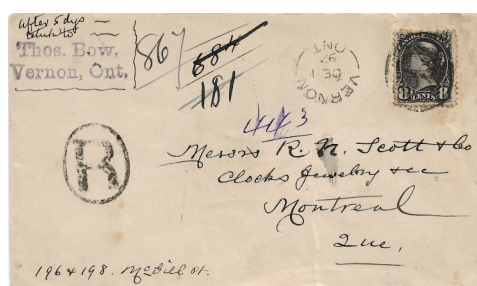 after 5 dys
return to
Thos. Bow,
Vernon, Ont.
867
684
181
VERNON
ONT
443
8 CENTS 8
R
Messrs R. N. Scott & Co
Clocks Jewelry &cc
Montreal
Que,
196 & 198. McGill St.